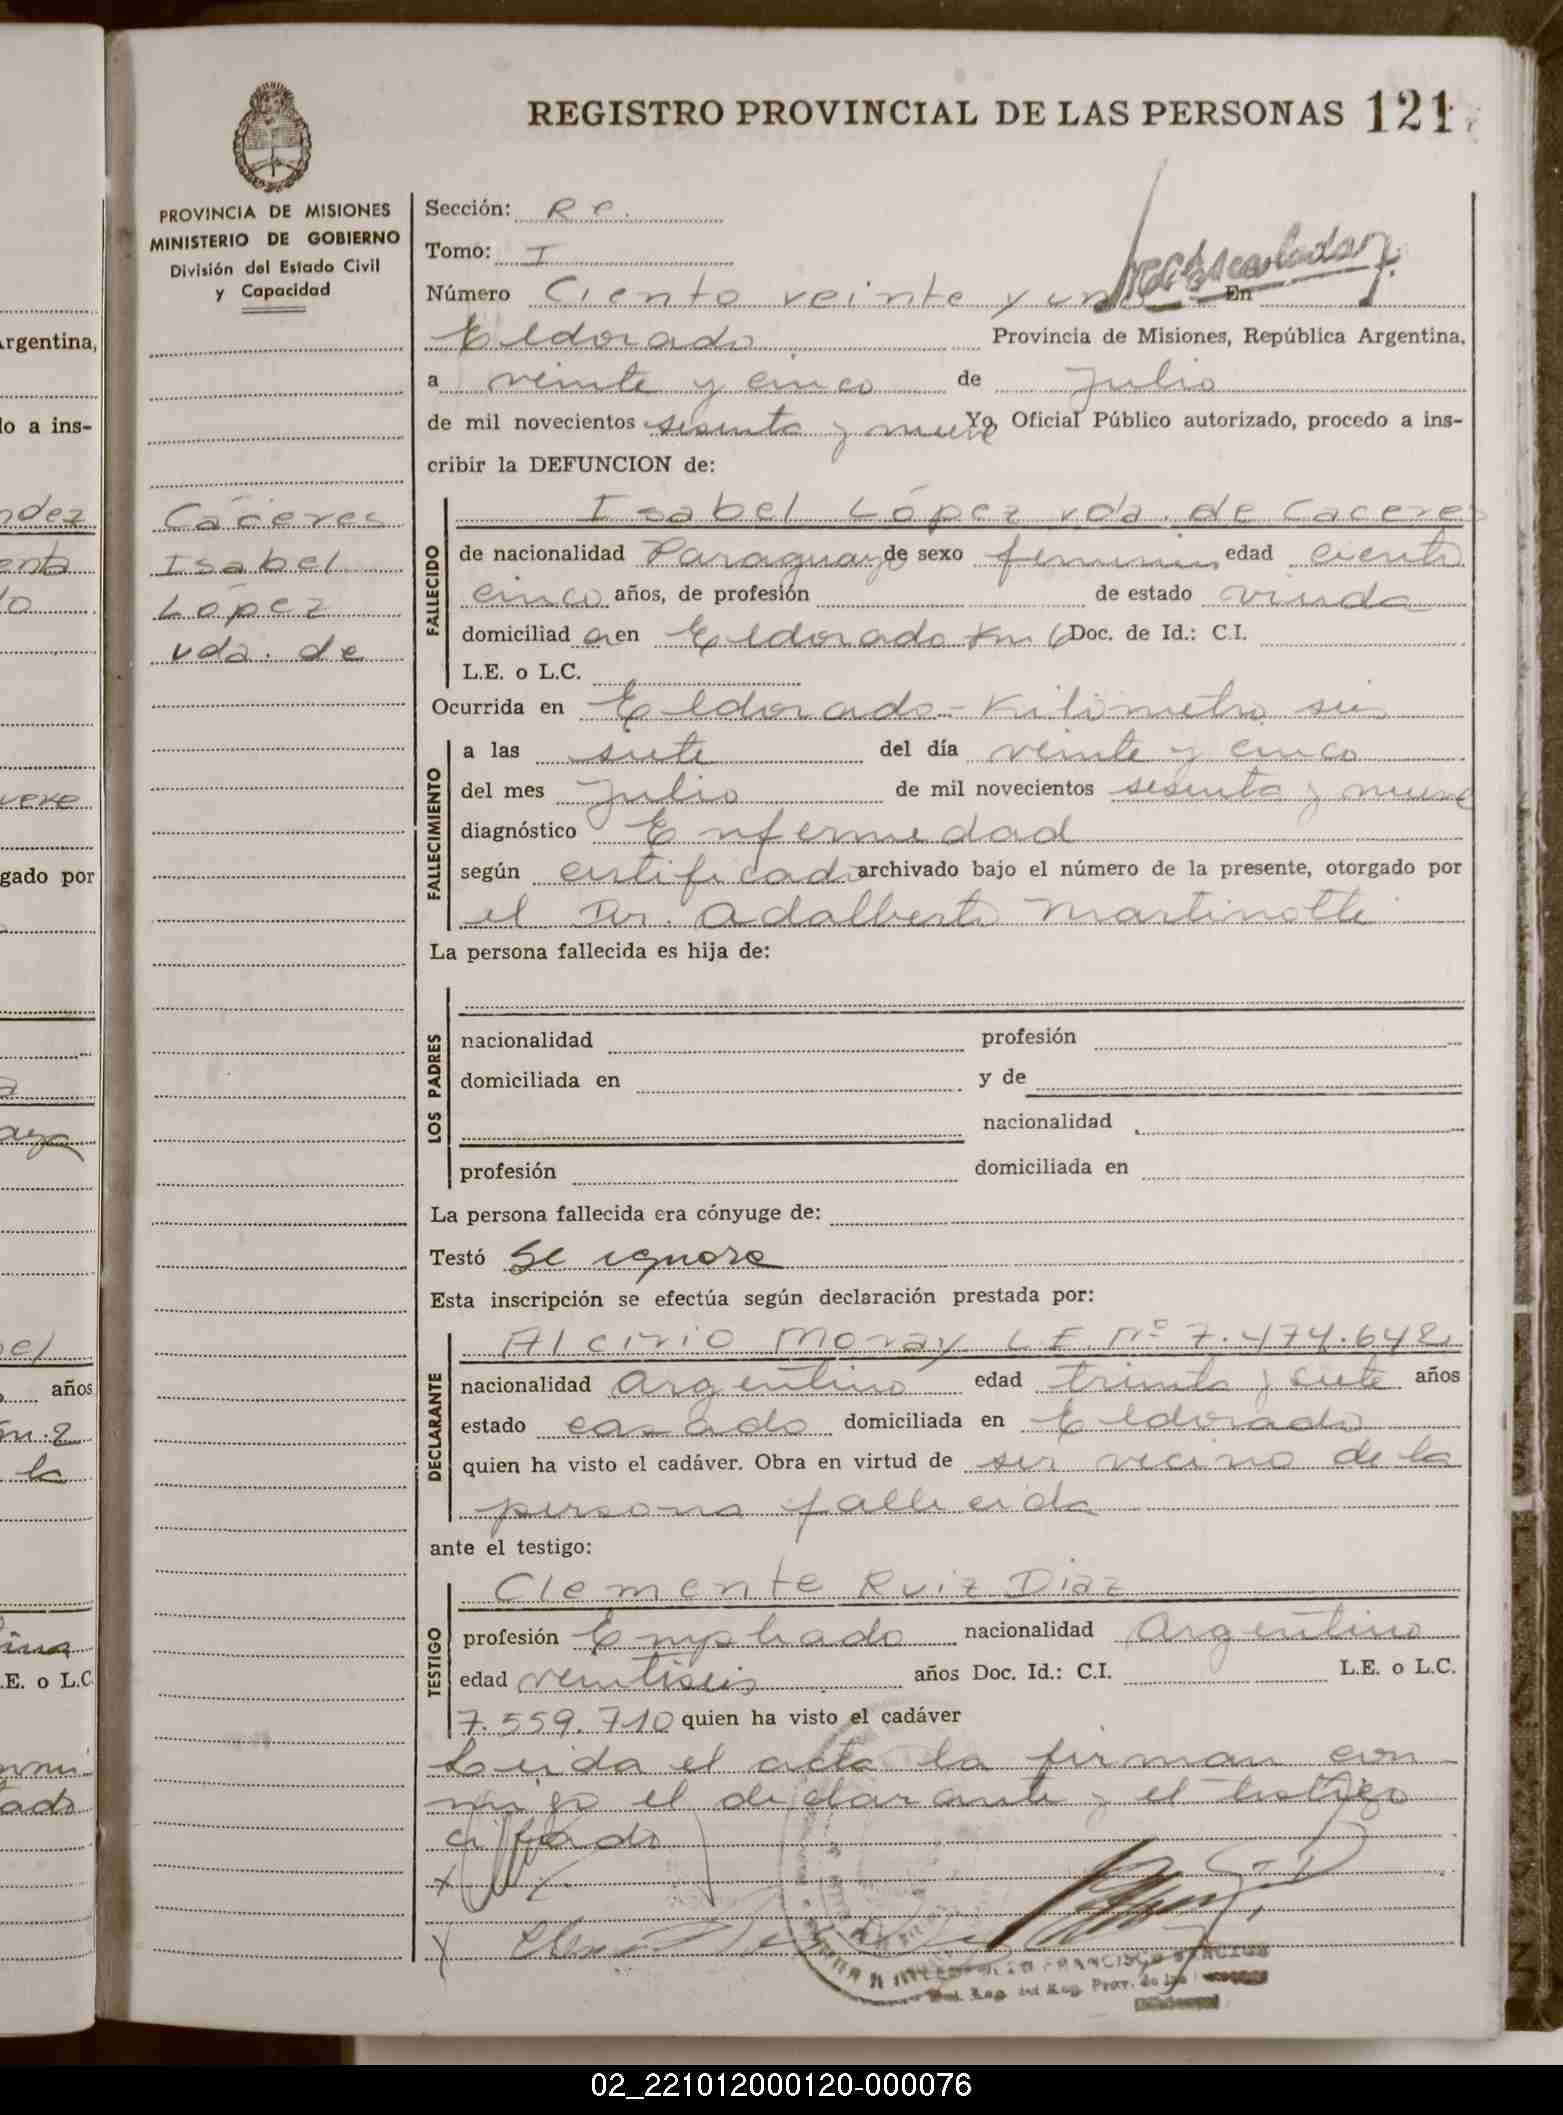 REGISTRO PROVINCIAL DE LAS PERSONAS 121
PROVINCIA DE MISIONES
MINISTERIO DE GOBIERNO
División del Estado Civil
y Capacidad
Cáceres
Isabel
López
vda. de
Sección: R C.
Tomo: I
Número Ciento veinte y uno En
Eldorado Provincia de Misiones, República Argentina,
a veinte y cinco de Julio
de mil novecientos sesenta y nueve Yo, Oficial Público autorizado, procedo a ins-
cribir la DEFUNCION de:
FALLECIDO
Isabel López vda. de Caceres
de nacionalidad Paraguaya de sexo femenino edad ciento
cinco años, de profesión de estado viuda
domiciliad a en Eldorado Km 6 Doc. de Id.: C.I.
L.E. o L.C.
Ocurrida en Eldorado - Kilómetro seis
FALLECIMIENTO
a las siete del día veinte y cinco
del mes Julio de mil novecientos sesenta y nueve
diagnóstico Enfermedad
según certificado archivado bajo el número de la presente, otorgado por
el Dr. Adalberto Martinotti
La persona fallecida es hija de:
LOS PADRES
nacionalidad profesión
domiciliada en y de
nacionalidad
profesión domiciliada en
La persona fallecida era cónyuge de:
Testó Se ignora
Esta inscripción se efectúa según declaración prestada por:
DECLARANTE
Alcirio Moray L E. Nº 7.474.642
nacionalidad Argentino edad treinta y siete años
estado casado domiciliada en Eldorado
quien ha visto el cadáver. Obra en virtud de ser vecino de la
persona fallecida
ante el testigo:
TESTIGO
Clemente Ruiz Diaz
profesión Empleado nacionalidad Argentino
edad veintiseis años Doc. Id.: C.I. L.E. o L.C.
7.559.710 quien ha visto el cadáver
Leida el acta la firman con
migo el declarante y el testigo
citado
x
x
FRANCISCO
Reg. Prov. de las
rgentina,
lo a ins-
ndez
gado por
años
la
.E. o L.C.
02_221012000120-000076